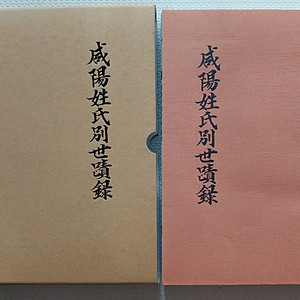 咸陽姓氏別世蹟録
咸陽姓氏別世蹟録